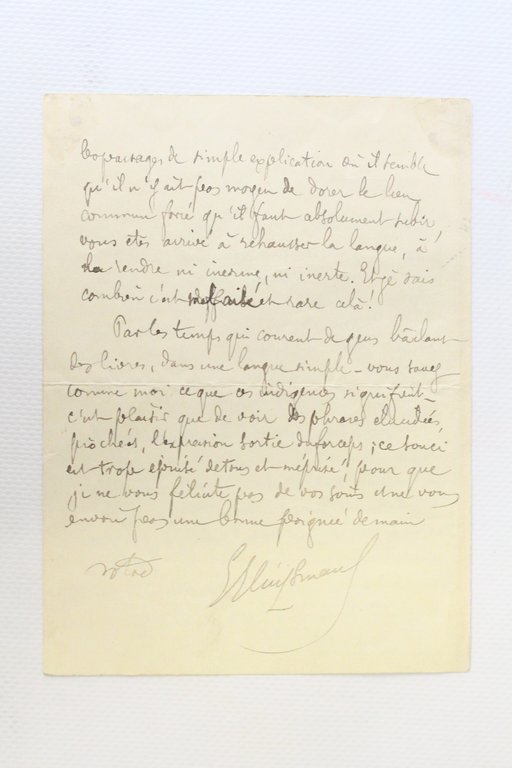 les passages de simple explication où il semble
qu'il n'y ait pas moyen de dorer le lieu
commun forcé qu'il faut absolument subir,
vous etes arrivé à rehausser la langue, à
la rendre ni inerme, ni inerte. Et je sais
combien c'est et rare celà!
Par les temps qui courent de gens bâclant
des livres, dans une langue simple - vous savez
comme moi ce que ces indigences signifient -
c'est plaisir que de voir des phrases étudiées,
piochées, l'expression sortie du forceps; ce souci
est trop de tous et méprisé, pour que
je ne vous félicite pas de vos soins et ne vous
envoie pas une bonne poignée de main
votre
GHuysmans